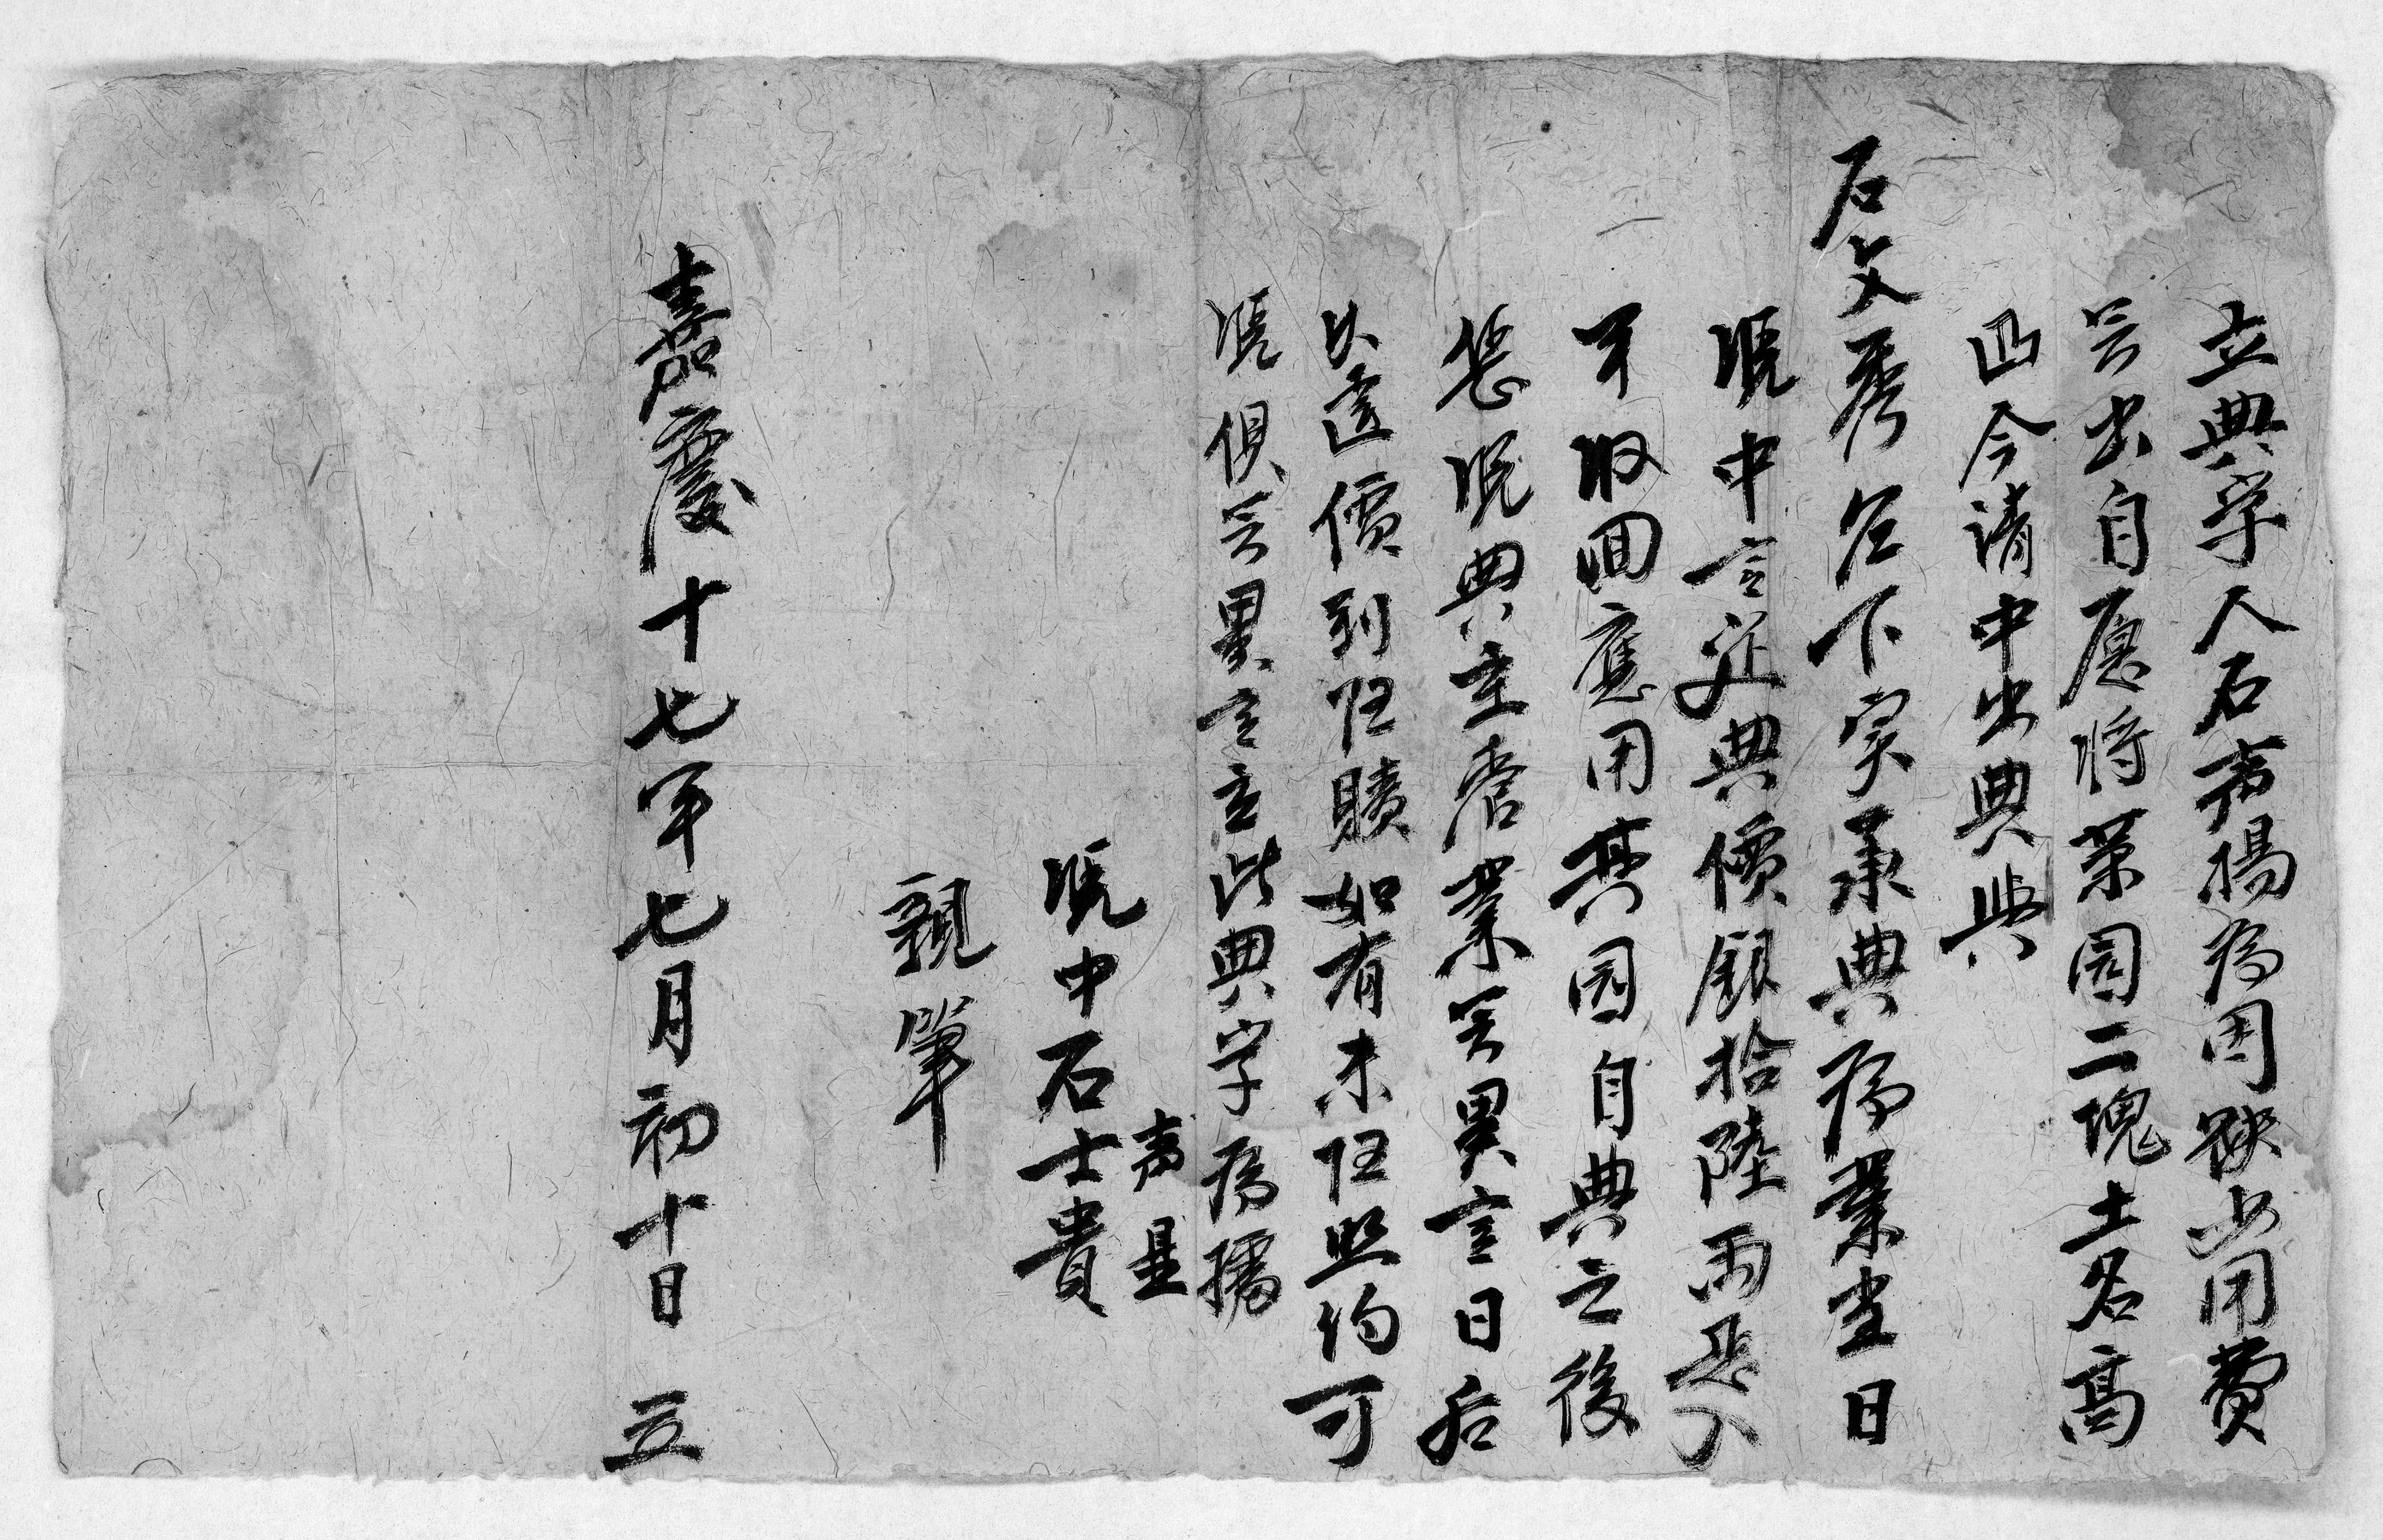 立典字人石壽揚為因缺少用費
無出自愿將菜园二塊土名高
凹今請中出典與
石文秀名下宗承典為業當日
凴中言定典價銀拾陸両足入
手收回應用其园自典之後
恁凴典主管業無異言日后
以遠價到归贖如有未归照約可
凴俱無異言立此典字為據
凴中石士貴
壽星
親筆
嘉慶十七年七月初十日 立